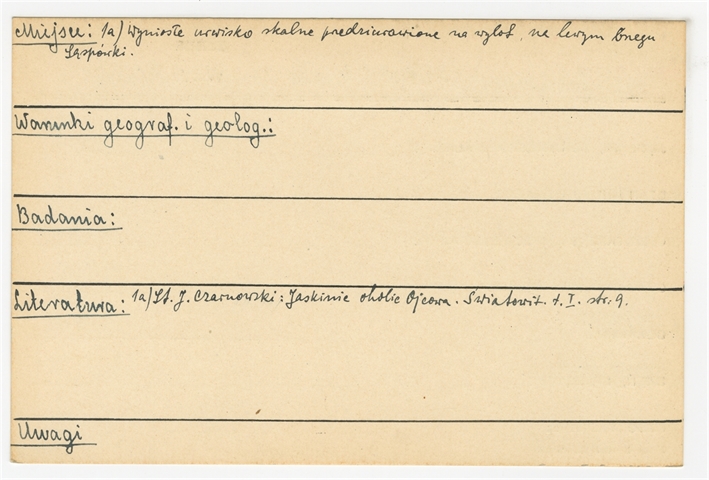 Miejsce: 1a) Wyniosłe urwisko skalne przedziurawione na wylot, na lewym brzegu
Sąspówki.
Warunki geograf. i geolog.:
Badania:
Literatura: 1a) St. J. Czarnowski: Jaskinie okolic Ojcowa. Światowit. t. I. str. 9.
Uwagi